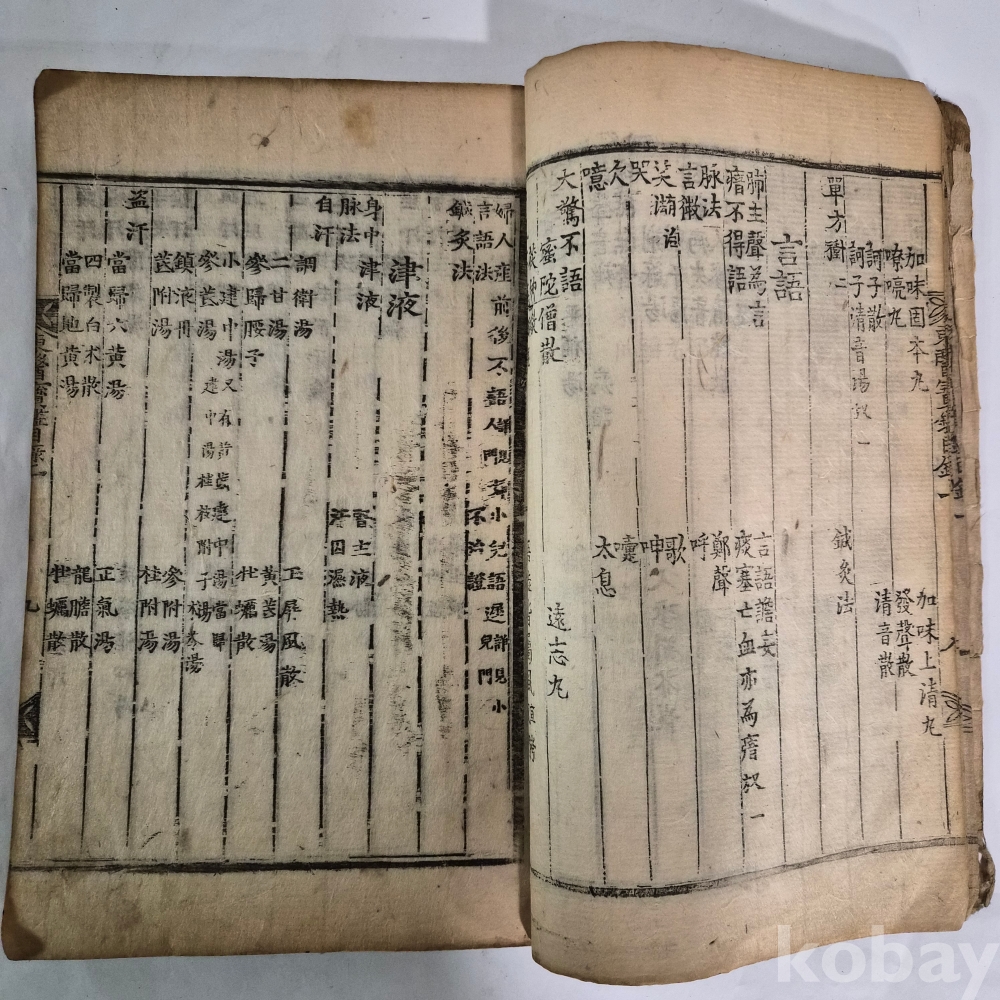 加味固本丸 加味上清丸
嘹喨丸 發聲散
訶子散 清音散
訶子清音湯 歌一
單方 鍼灸法
言語
肺主聲為言 言語譫妄
瘖不得語 痰塞亡血亦為瘖 歌一
脉法 鄭聲
言微 呼
笑 歌
哭 呻
欠 嚏
噫 太息
大驚不語
蜜陀僧散 遠志丸
婦人産前後不語 小兒語遲 詳見小兒門
言語法
鍼灸法
津液
身中津液 腎主液
脉法 汗因濕熱
自汗
調衛湯 正屏風散
二甘湯 黃芪湯
參歸腰子 牡蠣散
小建中湯 又有黃芪建中湯 當歸建中湯 桂枝附子湯
參芪湯
鎮液丹 參附湯
芪附湯 桂附湯
盜汗
當歸六黃湯 正氣湯
四製白朮散 龍膽散
當歸地黃湯 牡蠣散
東醫寶鑑目錄一
九
kobay